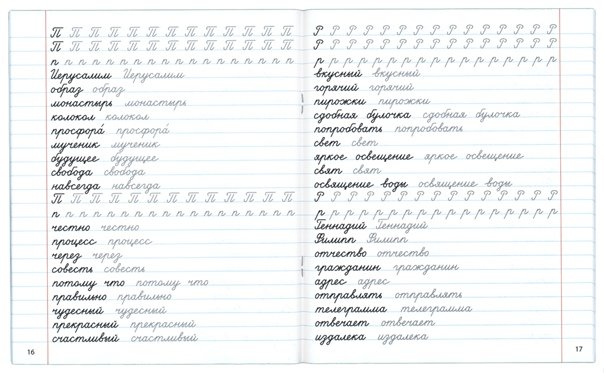 П П П П П П П П П П П П П
П П П П П П П П П П П П П
п п п п п п п п п п п п п п п п п
Иерусалим Иерусалим
образ образ
монастырь монастырь
колокол колокол
просфора́ просфора́
мученик мученик
будущее будущее
свобода свобода
навсегда навсегда
П П П П П П П П П П П П П
п п п п п п п п п п п п п п п п п
честно честно
процесс процесс
через через
совесть совесть
потому что потому что
правильно правильно
чудесный чудесный
прекрасный прекрасный
счастливый счастливый
16
Р Р Р Р Р Р Р Р Р Р Р Р Р Р
Р Р Р Р Р Р Р Р Р Р Р Р Р Р
р р р р р р р р р р р р р р р р
вкусный вкусный
горячий горячий
пирожки пирожки
сдобная булочка сдобная булочка
попробовать попробовать
свет свет
яркое освещение яркое освещение
свят свят
освящение воды освящение воды
Р Р Р Р Р Р Р Р Р Р Р Р Р Р
р р р р р р р р р р р р р р р р
Геннадий Геннадий
Филипп Филипп
отчество отчество
гражданин гражданин
адрес адрес
отправлять отправлять
телеграмма телеграмма
отвечает отвечает
издалека издалека
17